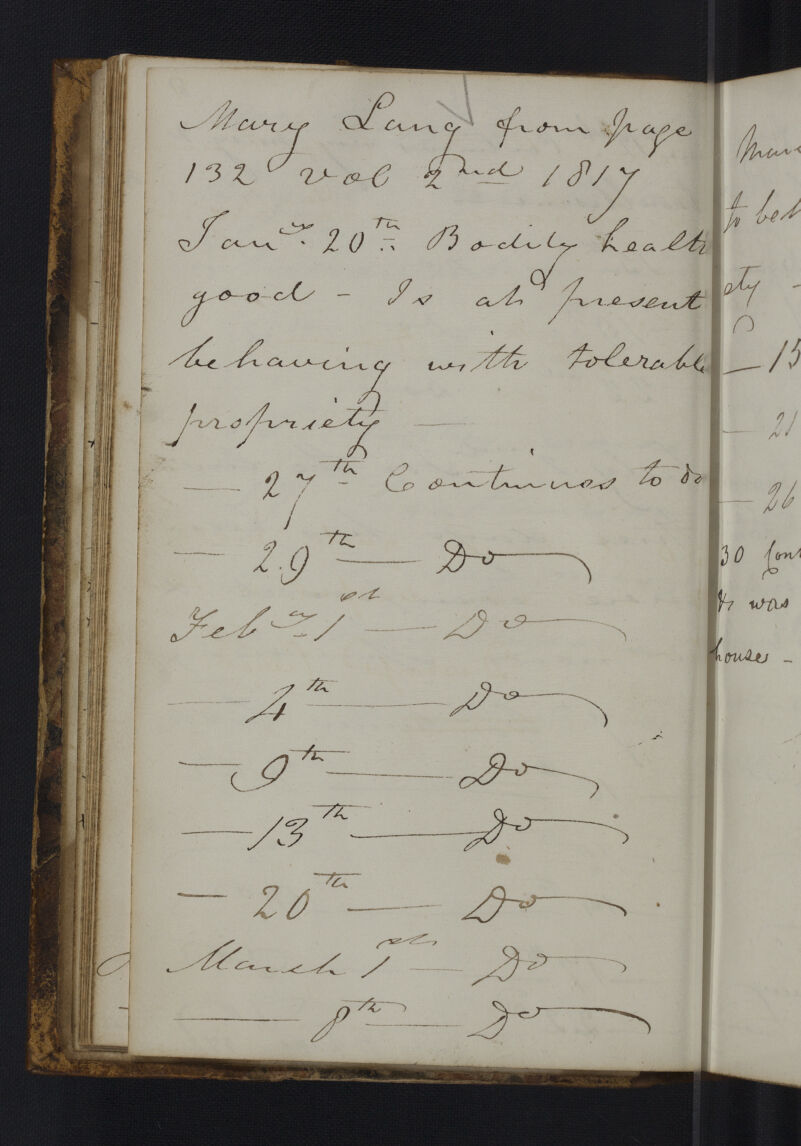 Mary Lang from page
132 vol 2nd 1817
Jany. 20th Bodily health
good - Is at present
behaving with tolerable
propriety —
— 27th Continues to do
— 29th — Do
Feby 1st — Do
— 4th — Do
— 9th — Do
— 13th — Do
— 20th — Do
March 1st — Do
— 8th — Do
ety -
— 15
— 21
— 26
30
was
house -